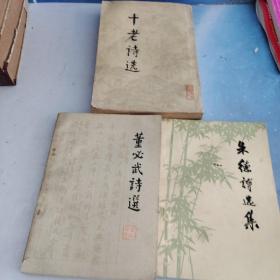 十老诗选
董必武詩選
朱德诗选集